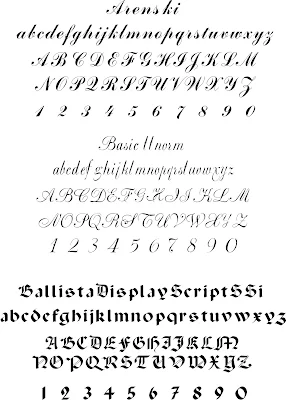 Arenski
abcdefghijklmnopqrstuvwxyz
ABCDEFGHIJKLM
NOPQRSTUVWXYZ
1 2 3 4 5 6 7 8 9 0
Basic Unorm
abcdefghijklmnopqrstuvwxyz
ABCDEFGHIJKLM
NOPQRSTUVWXYZ
1 2 3 4 5 6 7 8 9 0
BallistaDisplayScriptSSi
abcdefghijklmnopqrstuvwxyz
ABCDEFGHIJKLM
NOPQRSTUVWXYZ
1 2 3 4 5 6 7 8 9 0